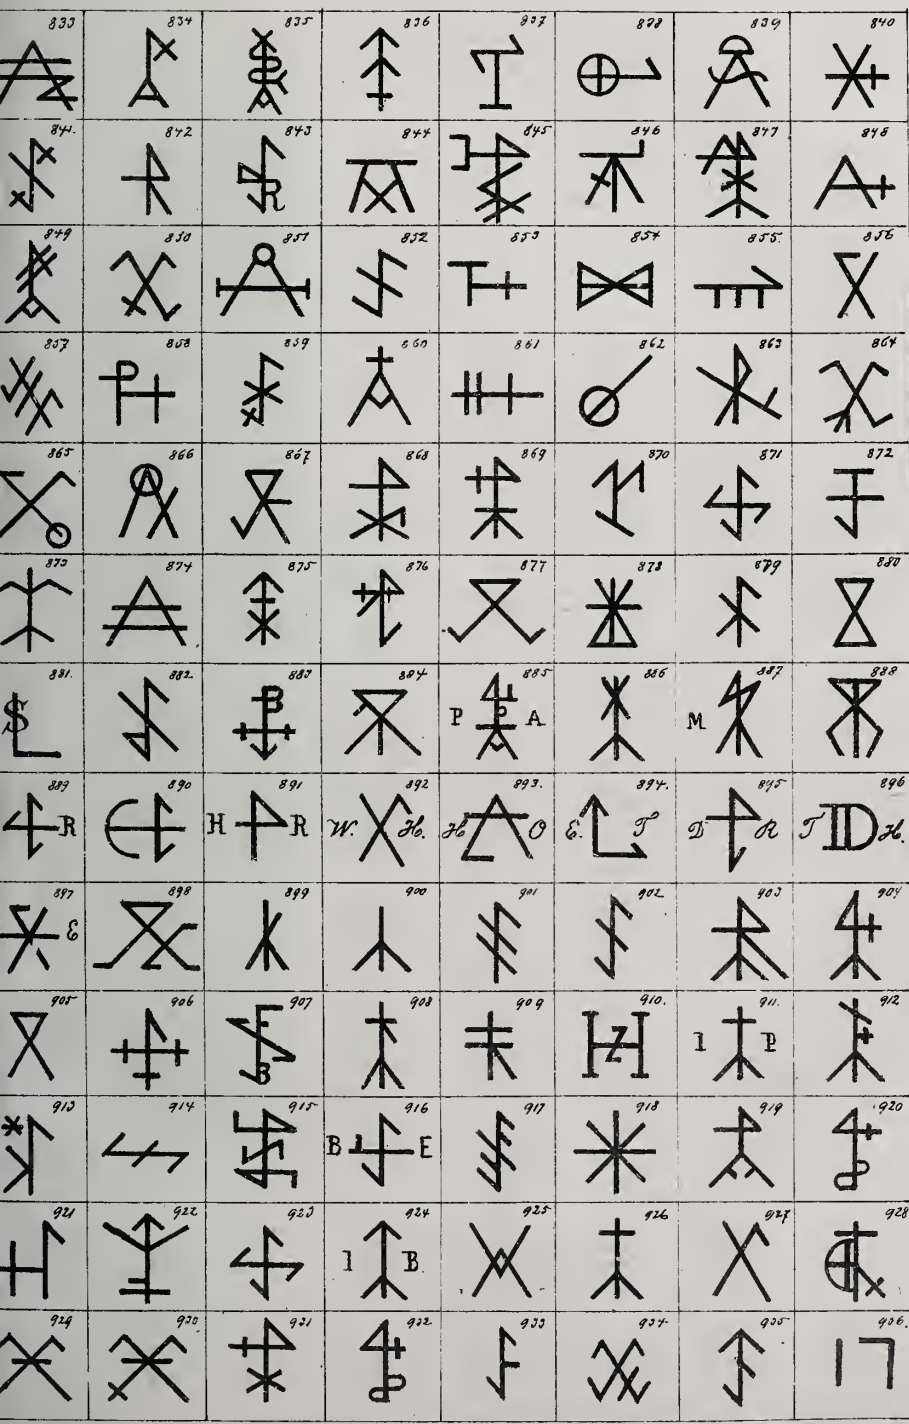 833 834 835 836 837 838 839 840
841. 842 843 844 845 846 847 848
R
849 850 851 852 853 854 855. 856
857 858 859 860 861 862 863 864
865 866 867 868 869 870 871 872
873 874 875 876 877 878 879 880
881. 882. 883 884 885 886 887 888
S B P A M
889 890 891 892 893. 894. 895 896
R H R W. H. H O E. T D R T D H.
897 898 899 900 901 902. 903 904
E
905 906 907 908 909 910. 911. 912
B Z I P
913 914 915 916 917 918 919 920
B E
921 922 923 924 925 926 927 928
I B
929 930 931 932 933 934 935 936.